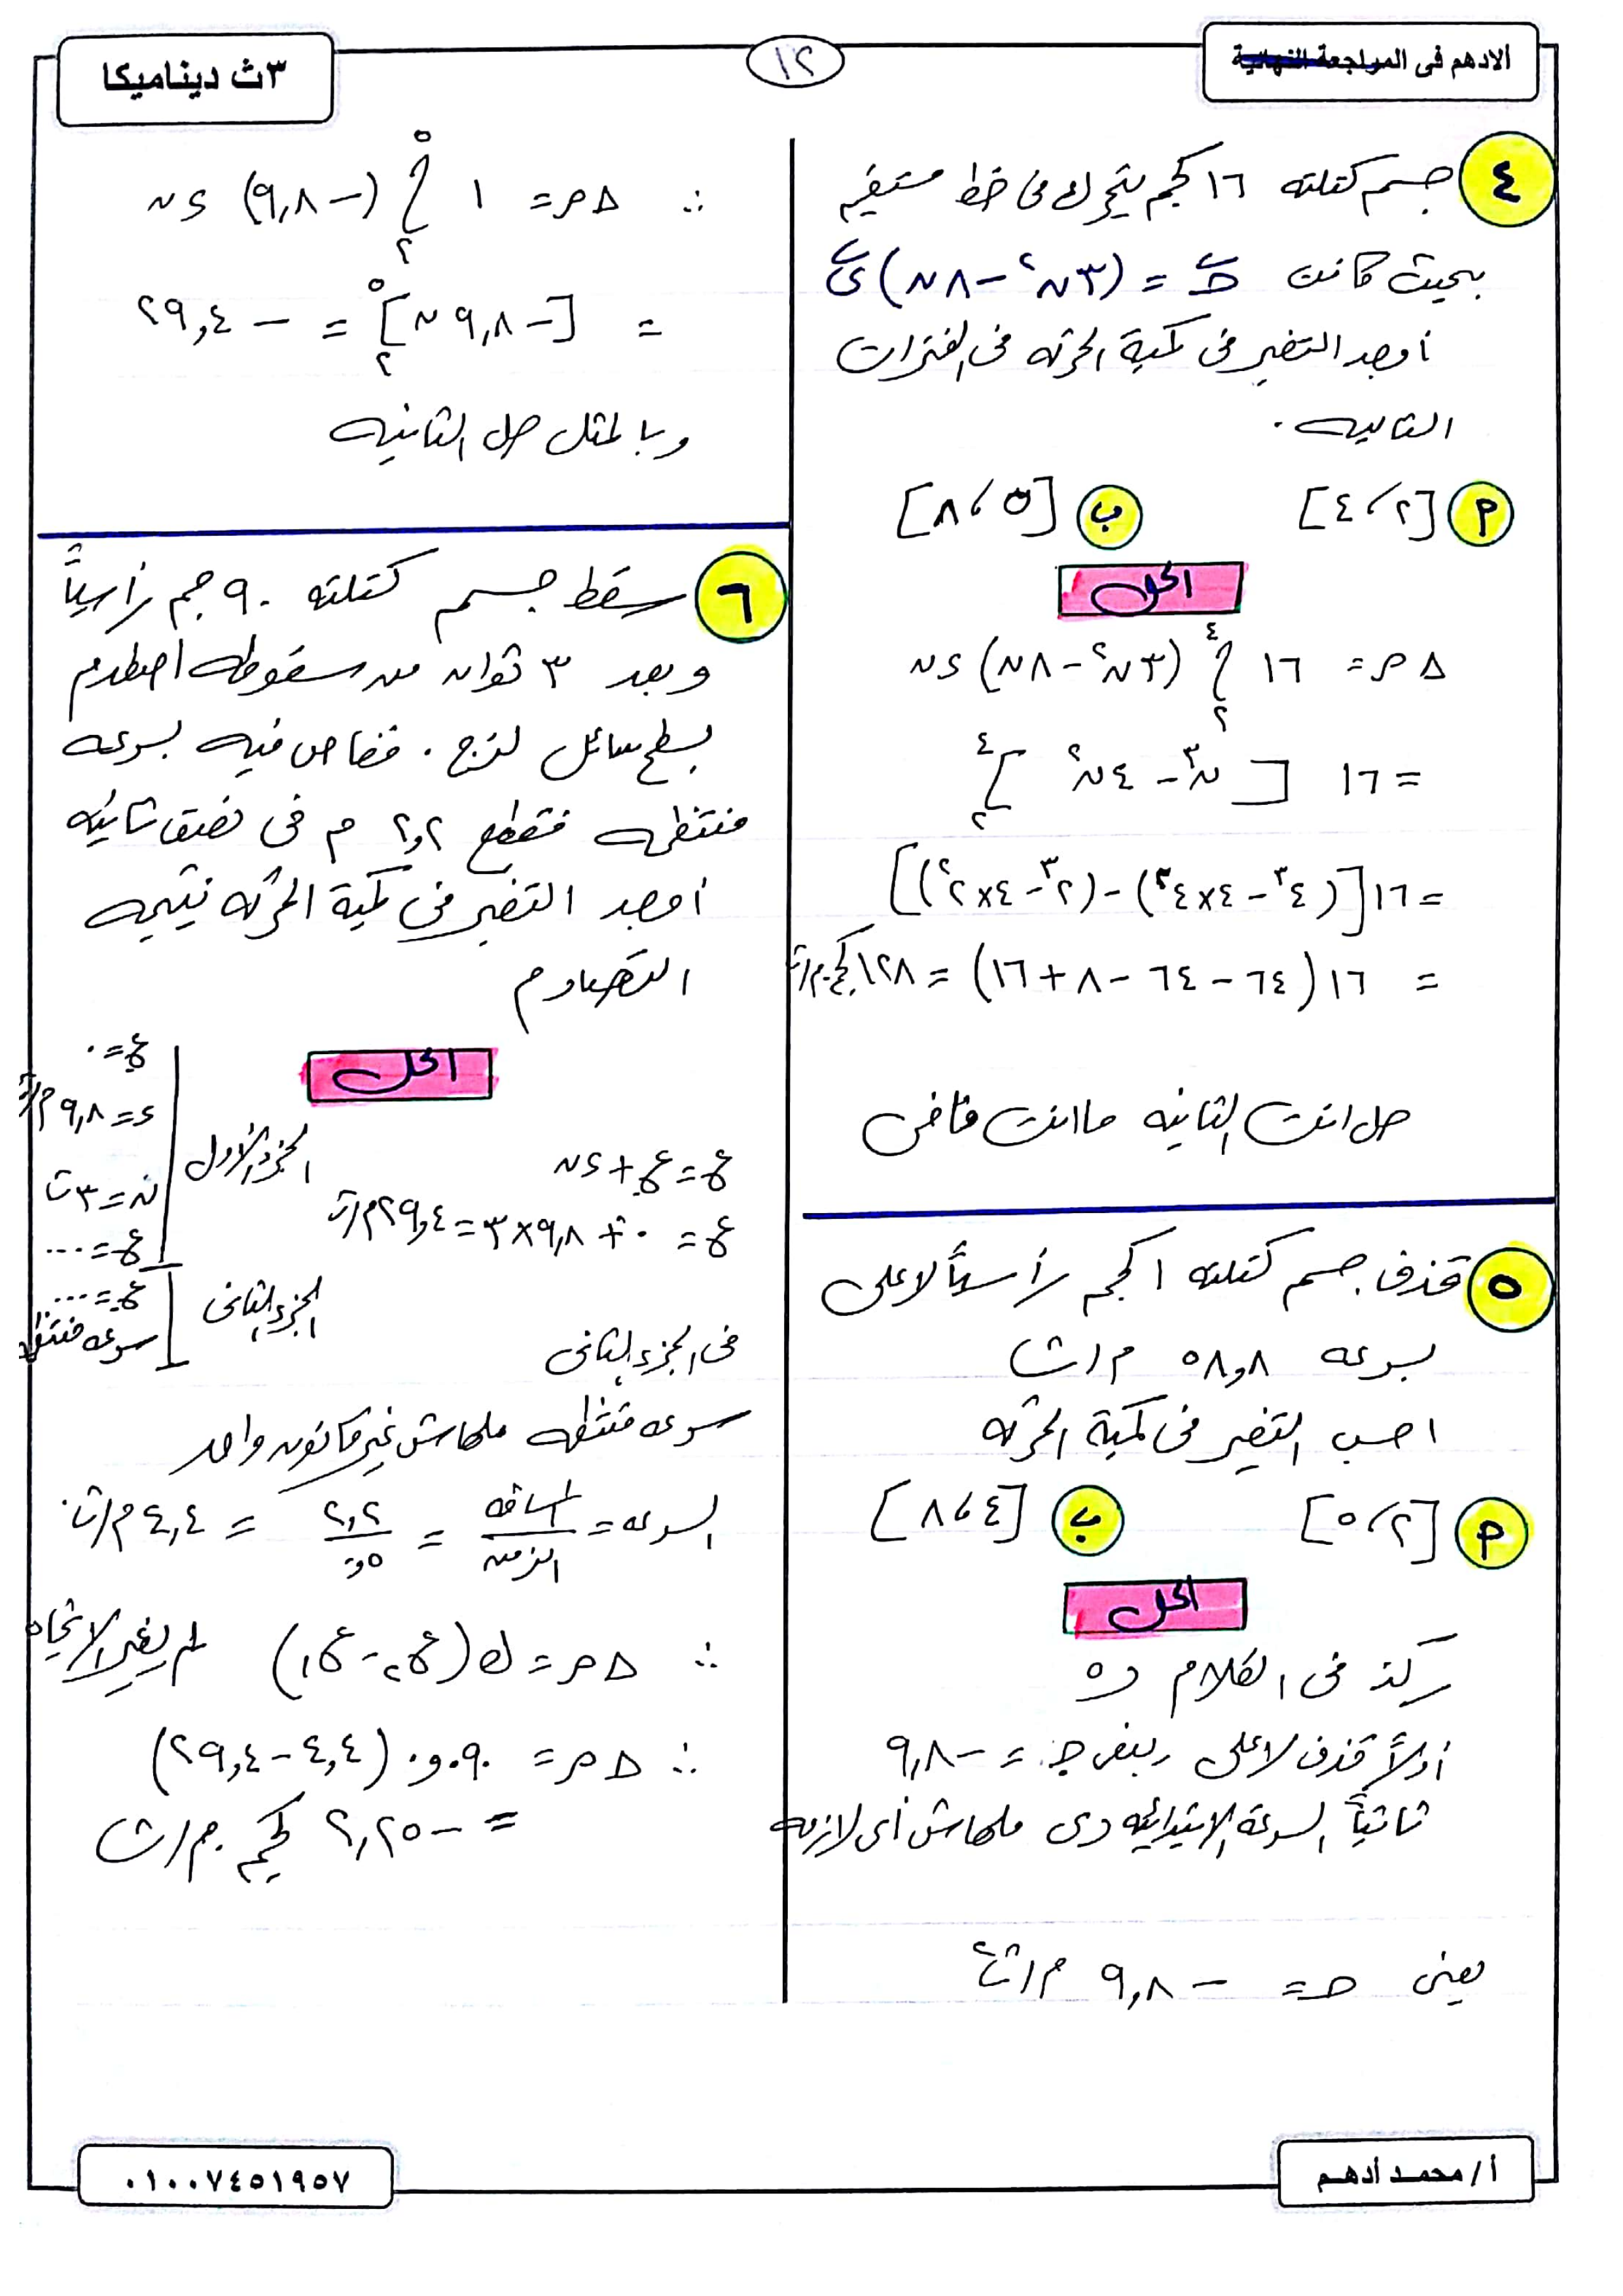 الادهم فى المراجعة النهائية
١٢
٣ث ديناميكا
٤ جسم كتلته ١٦ كجم يتحرك فى خط مستقيم
بحيث كانت جـ = (٣ن٢ - ٨ن) ى
أوجد التغير فى كمية الحركة فى الفترات
التاليه .
م [٢، ٤] ب [٥، ٨]
الحل
Δ م = ١٦ ∫ (٣ن٢ - ٨ن) ءن
= ١٦ [ن٣ - ٤ن٢]
= ١٦ [(٤٣ - ٤×٤٢) - (٢٣ - ٤×٢٢)]
= ١٦ (٦٤ - ٦٤ - ٨ + ١٦) = ١٢٨ كجم.م/ث
حل انت الثانيه ما انت فاضى
٥ قذف جسم كتلته ١ كجم رأسياً لاعلى
بسرعه ٥٨,٨ م/ث
احسب التغير فى كمية الحركه
م [٢، ٥] ب [٤، ٨]
الحل
ركز فى الكلام ده
أولاً قذف لاعلى يبقى جـ = - ٩,٨
ثانياً السرعة الابتدائيه دى ملهاش أى لازمه
يعنى جـ = - ٩,٨ م/ث٢
∴ Δ م = ١ ∫ (- ٩,٨) ءن
= [- ٩,٨ ن] = - ٢٩,٤
وبالمثل حل الثانيه
٦ سقط جسم كتلته ٩٠ جم رأسياً
وبعد ٣ ثوان من سقوطه اصطدم
بسطح سائل لزج . فغاص فيه بسرعه
منتظمه فقطع ٢,٢ م فى نصف ثانيه
أوجد التغير فى كمية الحركه نتيجه
التصادم
الحل
ع. = ٠
ء = ٩,٨ م/ث٢
ن = ٣ ث
ع = ...
الجزء الأول
ع = ع. + ءن
ع = ٠ + ٩,٨×٣ = ٢٩,٤ م/ث
ع. = ...
سرعه منتظمه
الجزء الثانى
فى الجزء الثانى
سرعه منتظمه ملهاش غير قانون واحد
السرعه = المسافه / الزمن = ٢,٢ / ٠,٥ = ٤,٤ م/ث
∴ Δ م = ك (ع٢ - ع١) لم يغير الاتجاه
∴ Δ م = ٠,٠٩ (٤,٤ - ٢٩,٤)
= - ٢,٢٥ كجم . م/ث
أ / محمد أدهم
٠١٠٠٧٤٥١٩٥٧